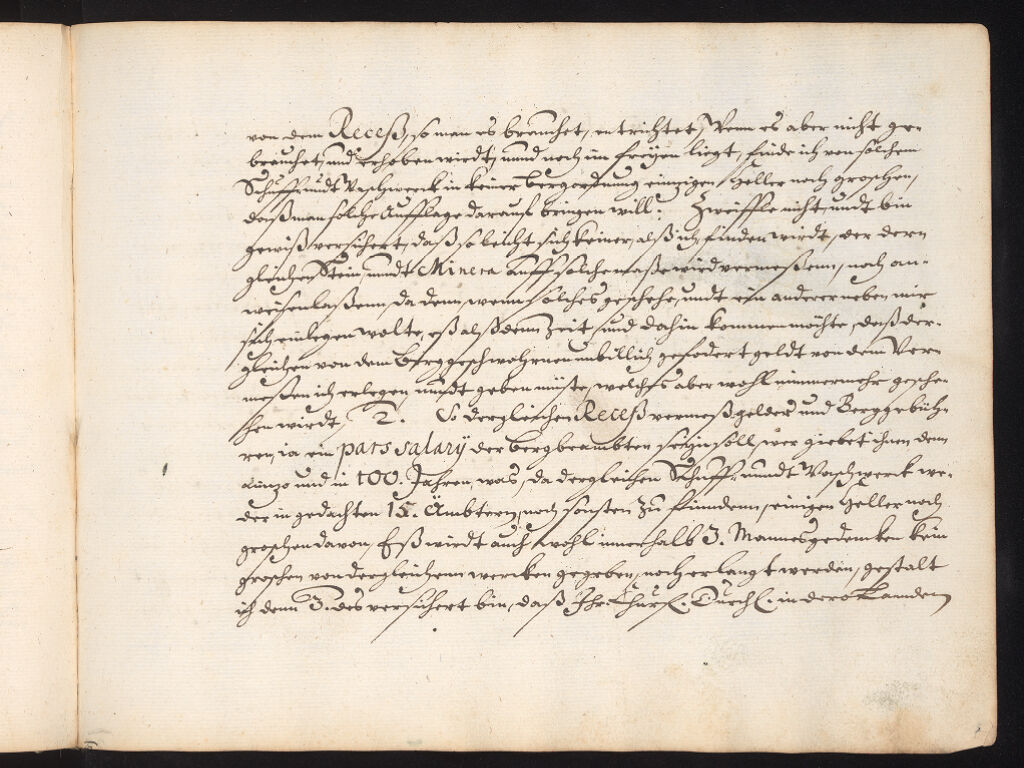 von dem Receß, so man es brauchet, entrichtet, Wenn es aber nicht ge-
brauchet, und erhoben wirdt, unnd noch im freÿen liegt, finde ich von solchem
Schurff- unndt Waschwerck in keiner bergordnung einzigen heller noch groschen,
daß man solche Aufflage daraus bringen will. Zweiffle nicht, undt bin
gewiß versichert, daß so leicht sich keiner, alß ich finden wirdt, der dern
gleichen Stein, unndt Minera Auff solche maße wird vermeßenn, noch an-
weisen laßenn, da denn, wenn solches geschehe, undt ein anderer neben mir
sich einlegen wolte, eß alß denn Zeit, und dahin kommen möchte, daß der-
gleichen von dem berggeschwohrnen unbillich gefodert geldt von dem Ver-
meßen ich erlegen unndt geben müste, welches aber wohl nimmermehr gesche-
hen wirdt. 2. So dergleichen Receß vermeßgelder und Berggebüh-
ren, ia ein pars salarÿ der bergbeambten sein soll, wer giebet ihnen denn
und in 100. Jahren, was, da dergleichen Schurff- unndt Waschwerk we-
der in gedachten 15. Ämbtern, noch sonsten zu finndenn, einigen heller noch
groschen davon, Eß wirdt auch wohl innerhalb 3. Mannes gedencken kein
groschen von dergleichenn wercken gegeben, noch erlangt werden, gestalt
ich denn 3. des versichert bin, daß Ihr. Churf. Durchl. in dero Landen